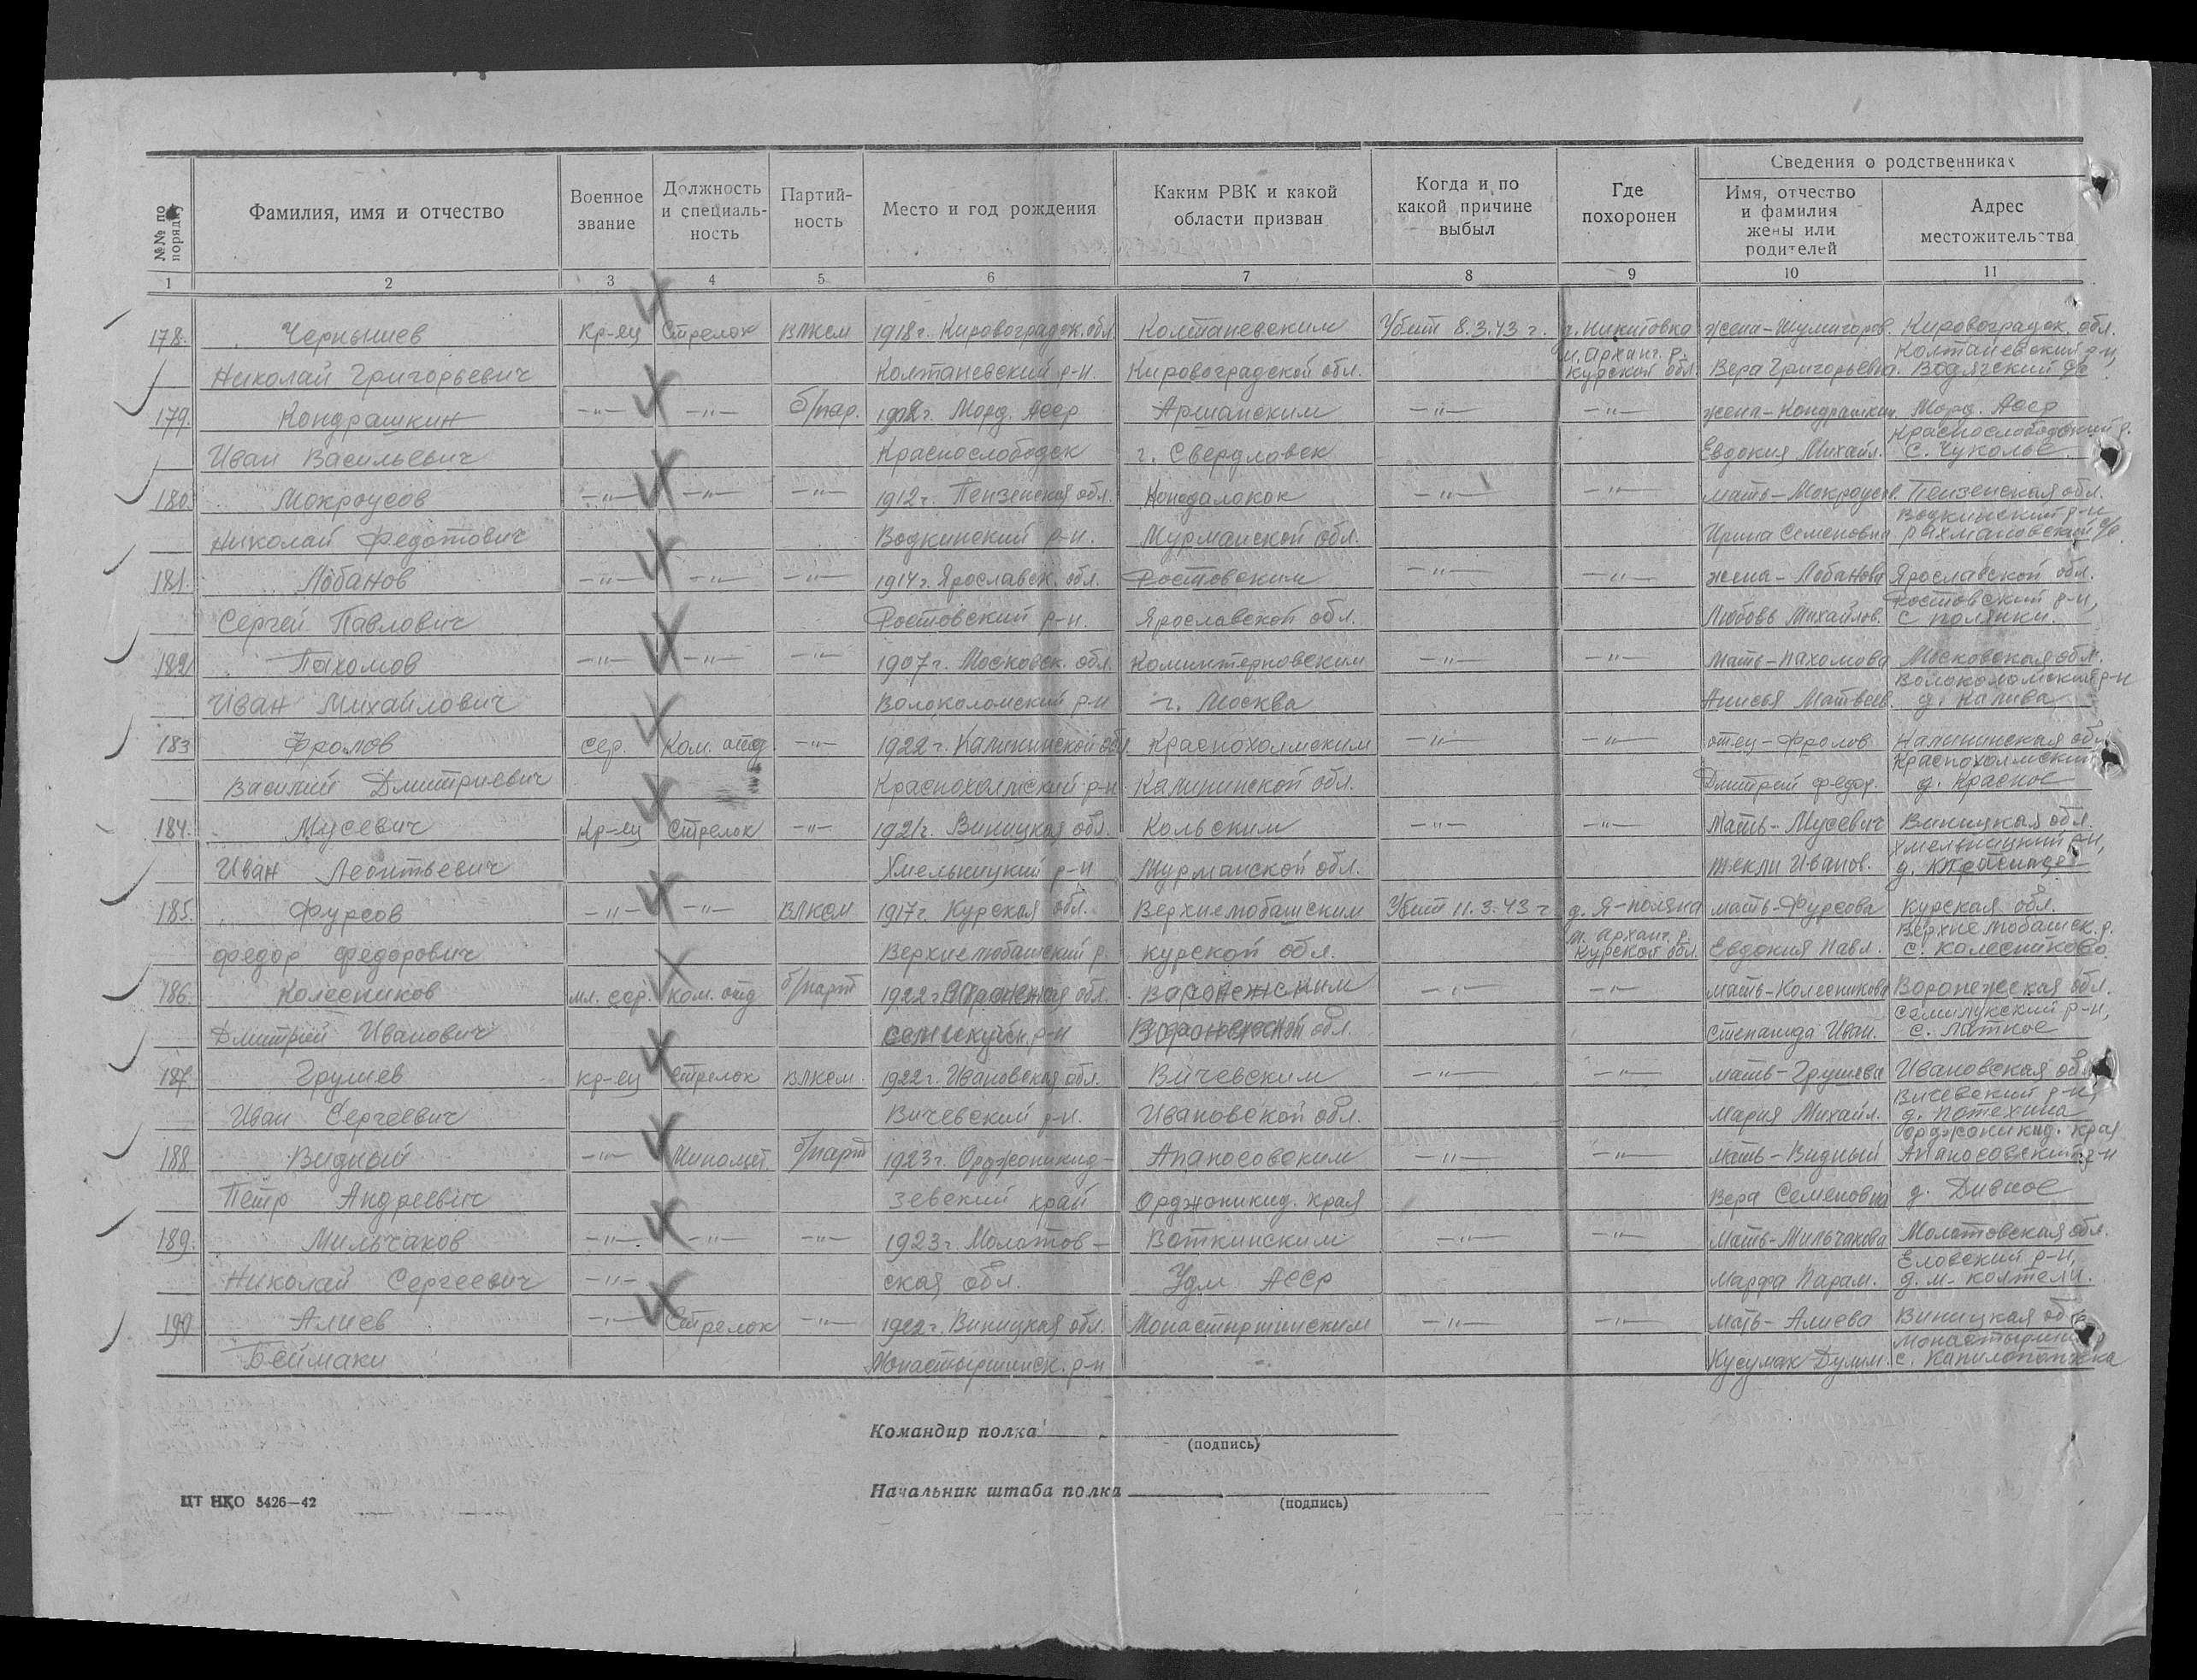 Сведения о родственниках
№№ по порядку
Фамилия, имя и отчество
Военное звание
Должность и специаль-ность
Партий-ность
Место и год рождения
Каким РВК и какой области призван
Когда и по какой причине выбыл
Где похоронен
Имя, отчество и фамилия жены или родителей
Адрес местожительства
1 2 3 4 5 6 7 8 9 10 11
178. Чернышев Кр-ец Стрелок ВЛКСМ 1918 г. Кировоградск. обл. Колтаневским Убит 8.3.43 г. д. Никитовка жена- Кировоградск. обл.
Николай Григорьевич Колтаневский р-н. Кировоградской обл. м. Арханг. р. Курской обл. Вера Григорьевна. Колтаневский р-н,
179. Кондрашкин -"- -"- б/пар. Морд. Асср Аршанским -"- -"- жена-Кондрашкин. Морд. Асср
Иван Васильевич Краснослободск г. Свердловск Евдокия Михайл. Краснослободский р. с. Чуколы
180. Мокроусов -"- -"- -"- 1912 г. Пензенская обл. -"- -"- мать-Мокроусов. Пензенская обл.
Николай Федотович Водкинский р-н. Мурманской обл. Ирина Семеновна Водкинский р-н Рахмановский с/с.
181. Лобанов -"- -"- -"- 1914 г. Ярославск. обл. Ростовским -"- -"- жена-Лобанова Ярославской обл.
Сергей Павлович Ростовский р-н. Ярославской обл. Любовь Михайлов. Ростовский р-н, с Полянки.
182. Пахомов -"- -"- -"- 1907 г. Московск. обл. Коминтерновским -"- -"- Мать-Пахомова Московская обл.
Иван Михайлович Волоколомский р-н г. Москва Анисья Матвеев. Волоколомский р-н
183 Фролов сер. Ком. отд -"- 1922 г. Калининской обл. Краснохолмским -"- -"- отец-Фролов Калининская обл
Василий Дмитриевич Краснохолмский р-н Калининской обл. Дмитрий Федор. Краснохолмский д. Красное
184. Мусевич Кр-ец Стрелок -"- 1921 г. Виницкая обл. Кольским -"- -"- Мать-Мусевич Виницкая обл.
Иван Леонтьевич Хмельницкий р-н Мурманской обл. Текли Иванов. Хмельницкий р-н,
185. Фурсов -"- -"- ВЛКСМ 1917 г. Курская обл. Верхнелюбашским Убит 11.3.43 г д. Я-поляна мать-Фурсова Курская обл.
Федор Федорович Верхнелюбашский р. Курской обл. м. Арханг. р. Курской обл. Евдокия Павл. Верхнелюбашск. р. с. Колесниково
186. Колесников мл. сер. Ком. отд б/парт 1922 г. Воронежская обл. Воронежским -"- -"- Мать-Колесникова Воронежская обл.
Дмитрий Иванович р-н Воронежской обл. Степанида Иван. Семилукский р-н, с. Латное
187. Грушев кр-ец Стрелок ВЛКСМ. 1922 г. Ивановская обл. Вичевским -"- -"- мать-Грушева Ивановская обл
Иван Сергеевич Вичевский р-н. Ивановской обл. Мария Михайл. Вичевский р-н, д. Потехина
188. Видный -"- Миномет. б/парт 1923 г. Орджоникид- Апаносовским -"- -"- мать-Видный Орджоникид. края Апаносовский р-н
Петр Андреевич зевский край Орджоникид. края Вера Семеновна д. Дивное
189. Мильчаков -"- -"- -"- 1923 г. Молотов- Воткинским -"- -"- Мать-Мильчакова Молотовская обл.
Николай Сергеевич -"- ская обл. Удм. Асср Марфа Парам. Еловский р-н,
190 Алиев -"- Стрелок -"- 1922 г. Виницкая обл. Монастыршинским -"- -"- Мать-Алиева Виницкая обл
Беймаки Монастыршинск. р-н -"-
Командир полка
(подпись)
Начальник штаба полка
(подпись)
ЦТ НКО 5426—42